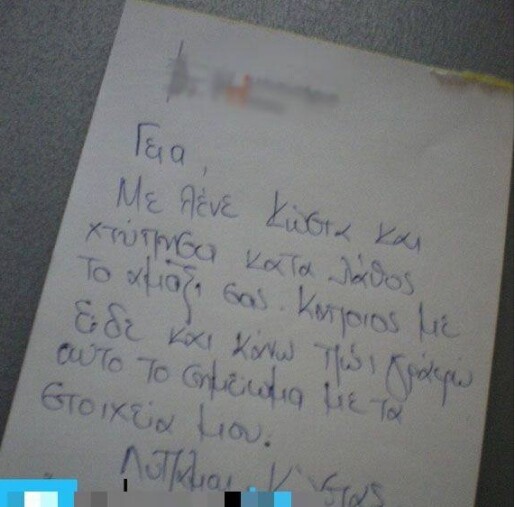 Γεια,
Με λένε Κώστα και
χτύπησα κατα λάθος
το αμάξι σας. Κάποιος με
είδε και κάνω πώς γράφω
αυτο το σημείωμα με τα
στοιχεία μου.
Λυπάμαι, Κώστας